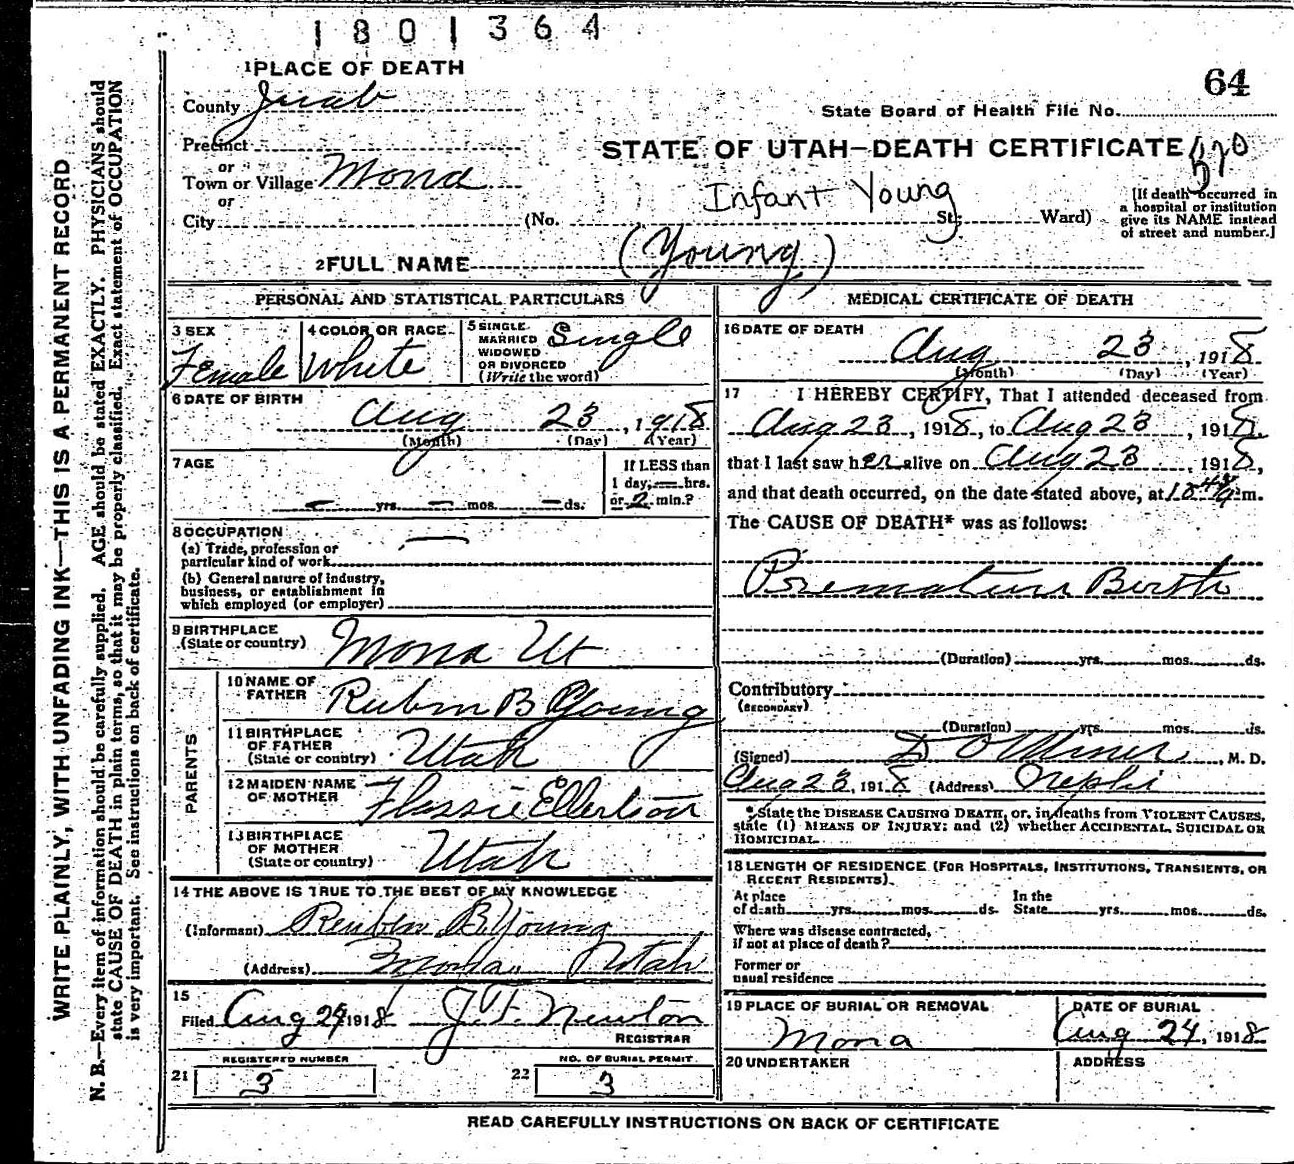 1801364
1 PLACE OF DEATH
64
County Juab
State Board of Health File No.
Precinct
or
STATE OF UTAH—DEATH CERTIFICATE 570
Town or Village Mona
or
Infant Young
City (No. St; Ward)
[If death occurred in
a hospital or institution
give its NAME instead
of street and number.]
2 FULL NAME (Young)
PERSONAL AND STATISTICAL PARTICULARS
3 SEX
Female
4 COLOR OR RACE
White
5 SINGLE
MARRIED
WIDOWED
OR DIVORCED
(Write the word)
Single
6 DATE OF BIRTH
Aug 23, 1918
(Month) (Day) (Year)
7 AGE
— yrs. — mos. — ds.
If LESS than
1 day, — hrs.
or 2 min.?
8 OCCUPATION —
(a) Trade, profession or
particular kind of work
(b) General nature of industry,
business, or establishment in
which employed (or employer)
9 BIRTHPLACE
(State or country) Mona Ut
PARENTS
10 NAME OF
FATHER Rubin B Young
11 BIRTHPLACE
OF FATHER
(State or country) Utah
12 MAIDEN NAME
OF MOTHER Flossie Ellertson
13 BIRTHPLACE
OF MOTHER
(State or country) Utah
14 THE ABOVE IS TRUE TO THE BEST OF MY KNOWLEDGE
(Informant) Reuben B. Young
(Address) Mona, Utah
15
Filed Aug 24, 1918 J. F. Newton
REGISTRAR
REGISTERED NUMBER
21 3
NO. OF BURIAL PERMIT
22 3
MEDICAL CERTIFICATE OF DEATH
16 DATE OF DEATH
Aug 23, 1918
(Month) (Day) (Year)
17 I HEREBY CERTIFY, That I attended deceased from
Aug 23, 1918, to Aug 23, 1918,
that I last saw her alive on Aug 23, 1918,
and that death occurred, on the date stated above, at m.
The CAUSE OF DEATH* was as follows:
Premature Birth
(Duration) yrs. mos. ds.
Contributory
(SECONDARY)
(Duration) yrs. mos. ds.
(Signed) D O Miner, M. D.
Aug 23, 1918 (Address) Nephi
*State the DISEASE CAUSING DEATH, or, in deaths from VIOLENT CAUSES,
state (1) MEANS OF INJURY; and (2) whether ACCIDENTAL, SUICIDAL OR
HOMICIDAL.
18 LENGTH OF RESIDENCE (FOR HOSPITALS, INSTITUTIONS, TRANSIENTS, OR
RECENT RESIDENTS).
At place In the
of death yrs. mos. ds. State yrs. mos. ds.
Where was disease contracted,
if not at place of death?
Former or
usual residence
19 PLACE OF BURIAL OR REMOVAL
Mona
DATE OF BURIAL
Aug 24, 1918
20 UNDERTAKER
ADDRESS
READ CAREFULLY INSTRUCTIONS ON BACK OF CERTIFICATE
WRITE PLAINLY, WITH UNFADING INK—THIS IS A PERMANENT RECORD
N. B.—Every item of information should be carefully supplied. AGE should be stated EXACTLY. PHYSICIANS should
state CAUSE OF DEATH in plain terms, so that it may be properly classified. Exact statement of OCCUPATION
is very important. See instructions on back of certificate.